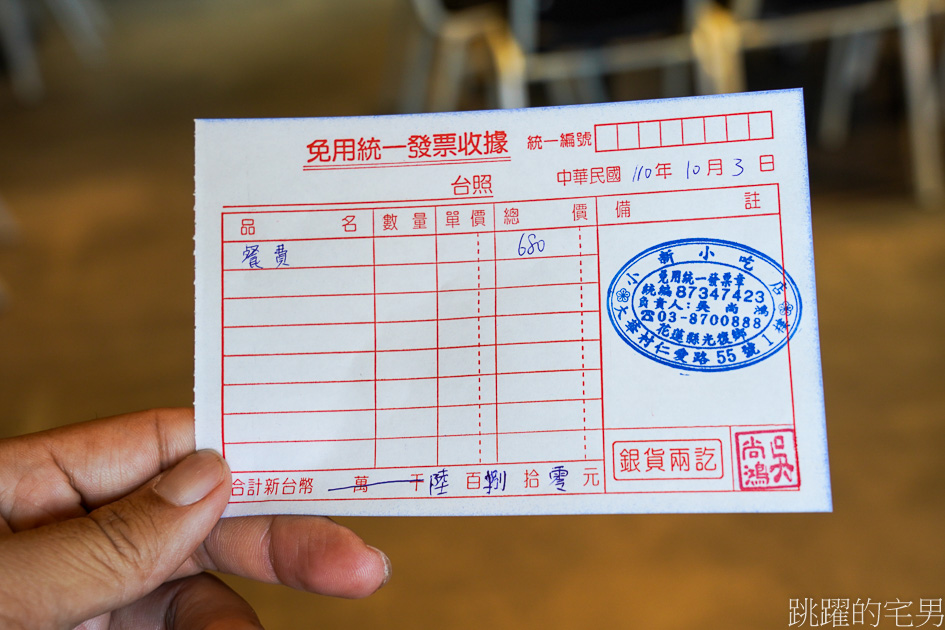 免用統一發票收據
統一編號
台照
中華民國 110年 10月 3日
品名 數量 單價 總價 備註
餐費 680
小新小吃店
免用統一發票章
統編87347423
負責人:吳尚鴻
☎03-8700888
花蓮縣光復鄉
大華村仁愛路55號1樓
銀貨兩訖
吳尚鴻
合計新台幣 萬 千陸百捌拾零元
跳躍的宅男